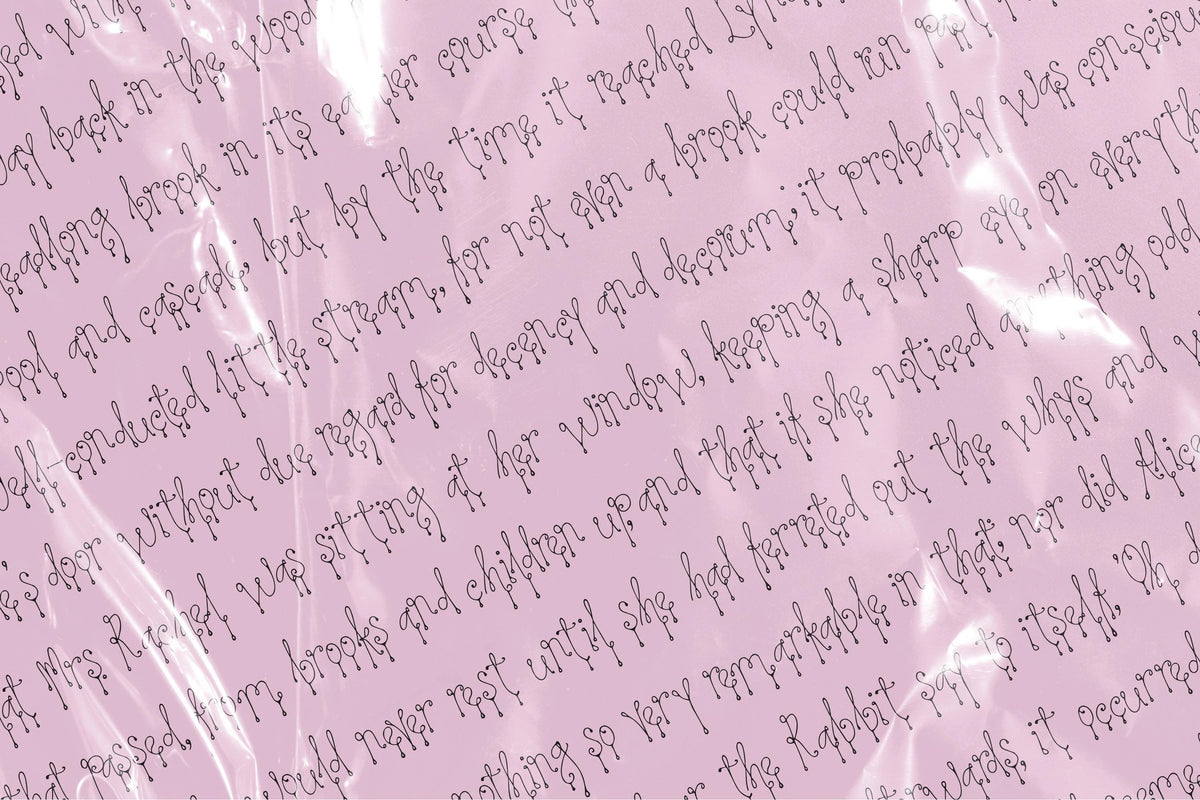 with
way back in the wood
headlong brook in its earlier course
pool and cascade; but by the time it reached Lyn
well-conducted little stream, for not even a brook could run past
e's door without due regard for decency and decorum; it probably was consciou
at Mrs. Rachel was sitting at her window, keeping a sharp eye on everyth
that passed, from brooks and children up, and that if she noticed anything odd
would never rest until she had ferreted out the whys and w
nothing so very remarkable in that; nor did Alice
the Rabbit say to itself, 'Oh d
terwards, it occurred